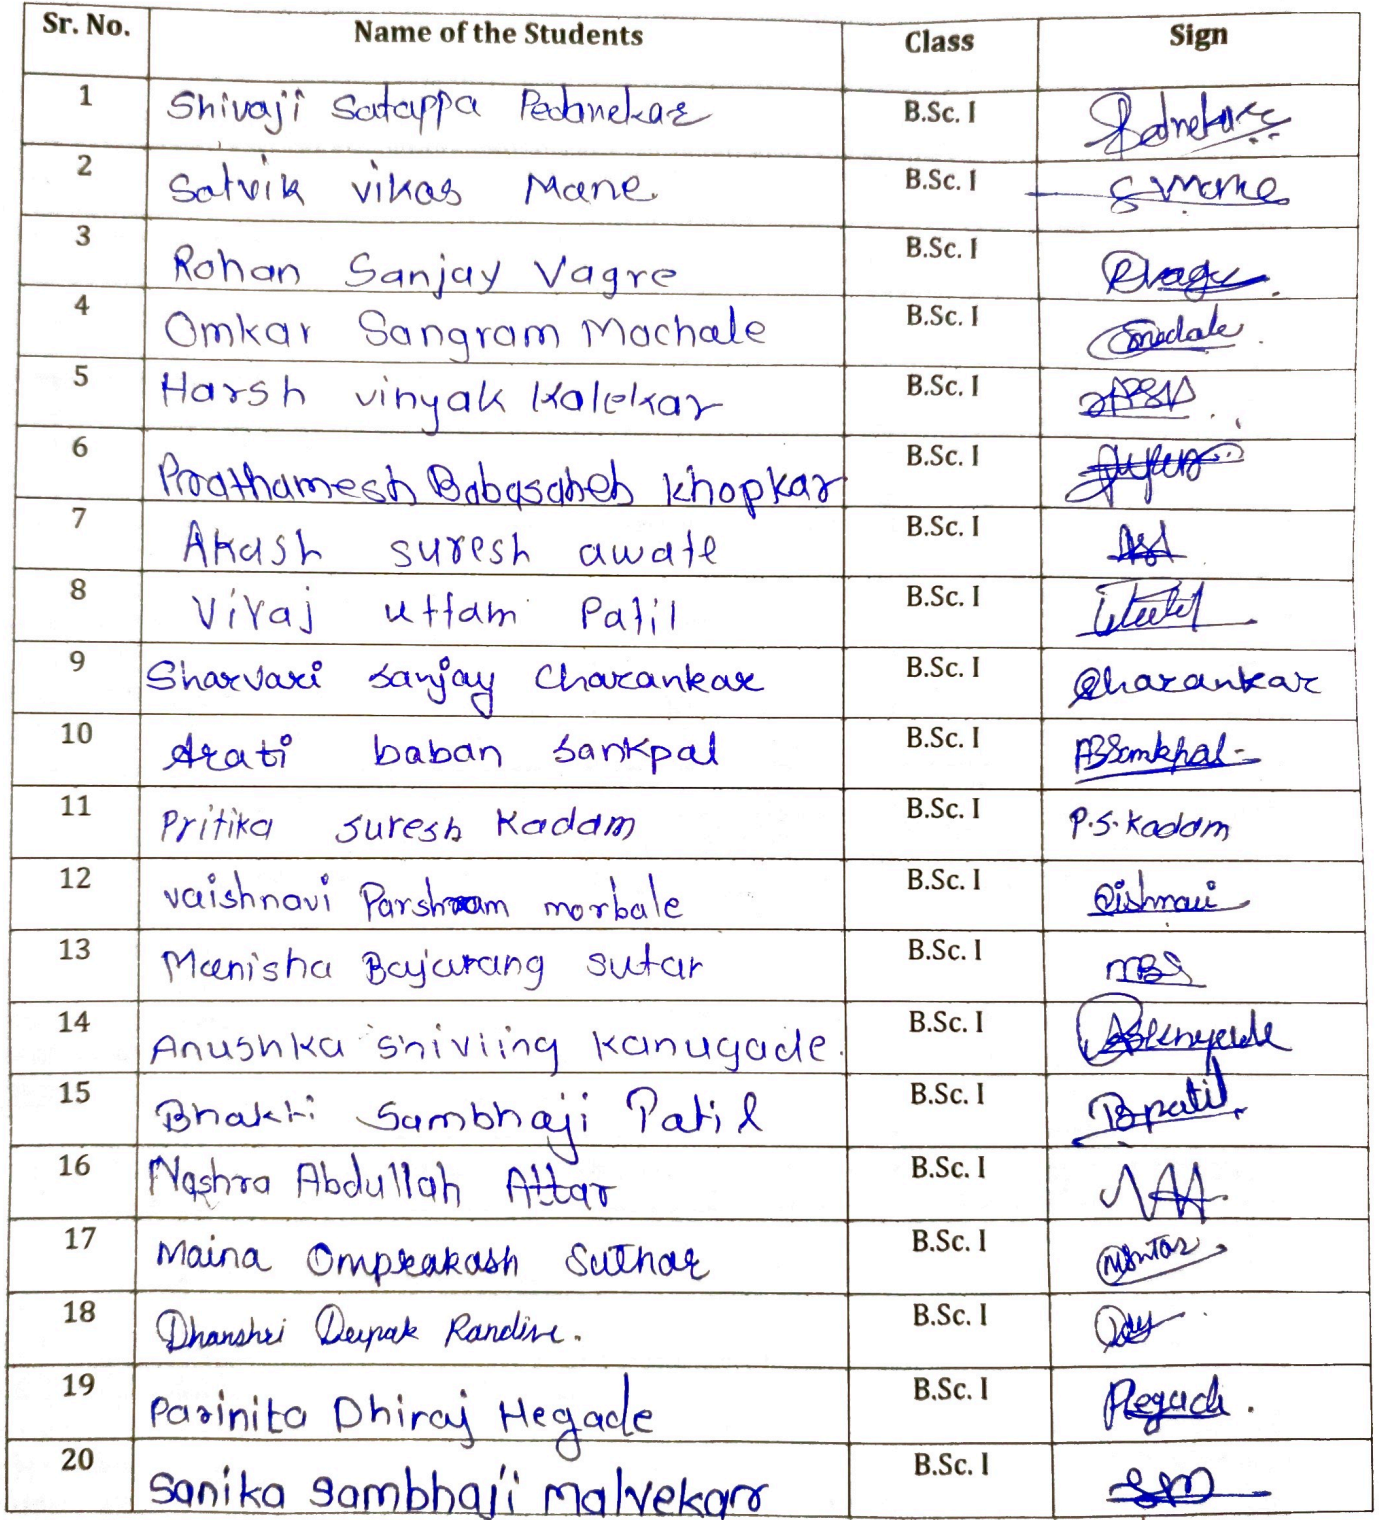 Sr. No. Name of the Students Class Sign
1 Shivaji Satappa Pednekar B.Sc. I Pednekar
2 Satvik vikas Mane. B.Sc. I S V Mane
3 Rohan Sanjay Vagre B.Sc. I
4 Omkar Sangram Machale B.Sc. I
5 Harsh vinyak Kalekar B.Sc. I
6 Prathamesh Babasaheb Khopkar B.Sc. I
7 Akash suresh awate B.Sc. I
8 Viraj uttam Patil B.Sc. I
9 Sharvari sanjay Charankar B.Sc. I Charankar
10 Arati baban sankpal B.Sc. I ABSankpal
11 Pritika suresh Kadam B.Sc. I P.S. Kadam
12 vaishnavi Parshram morbale B.Sc. I
13 Manisha Bajarang sutar B.Sc. I MBS
14 Anushka shivling kanugade. B.Sc. I
15 Bhakti Sambhaji Patil B.Sc. I B patil
16 Nashra Abdullah Attar B.Sc. I NAA
17 Maina Omprakash Suthar B.Sc. I
18 Dhanshri Deepak Randive. B.Sc. I
19 Parinita Dhiraj Hegade B.Sc. I Hegade.
20 Sanika Sambhaji Malvekar B.Sc. I SM